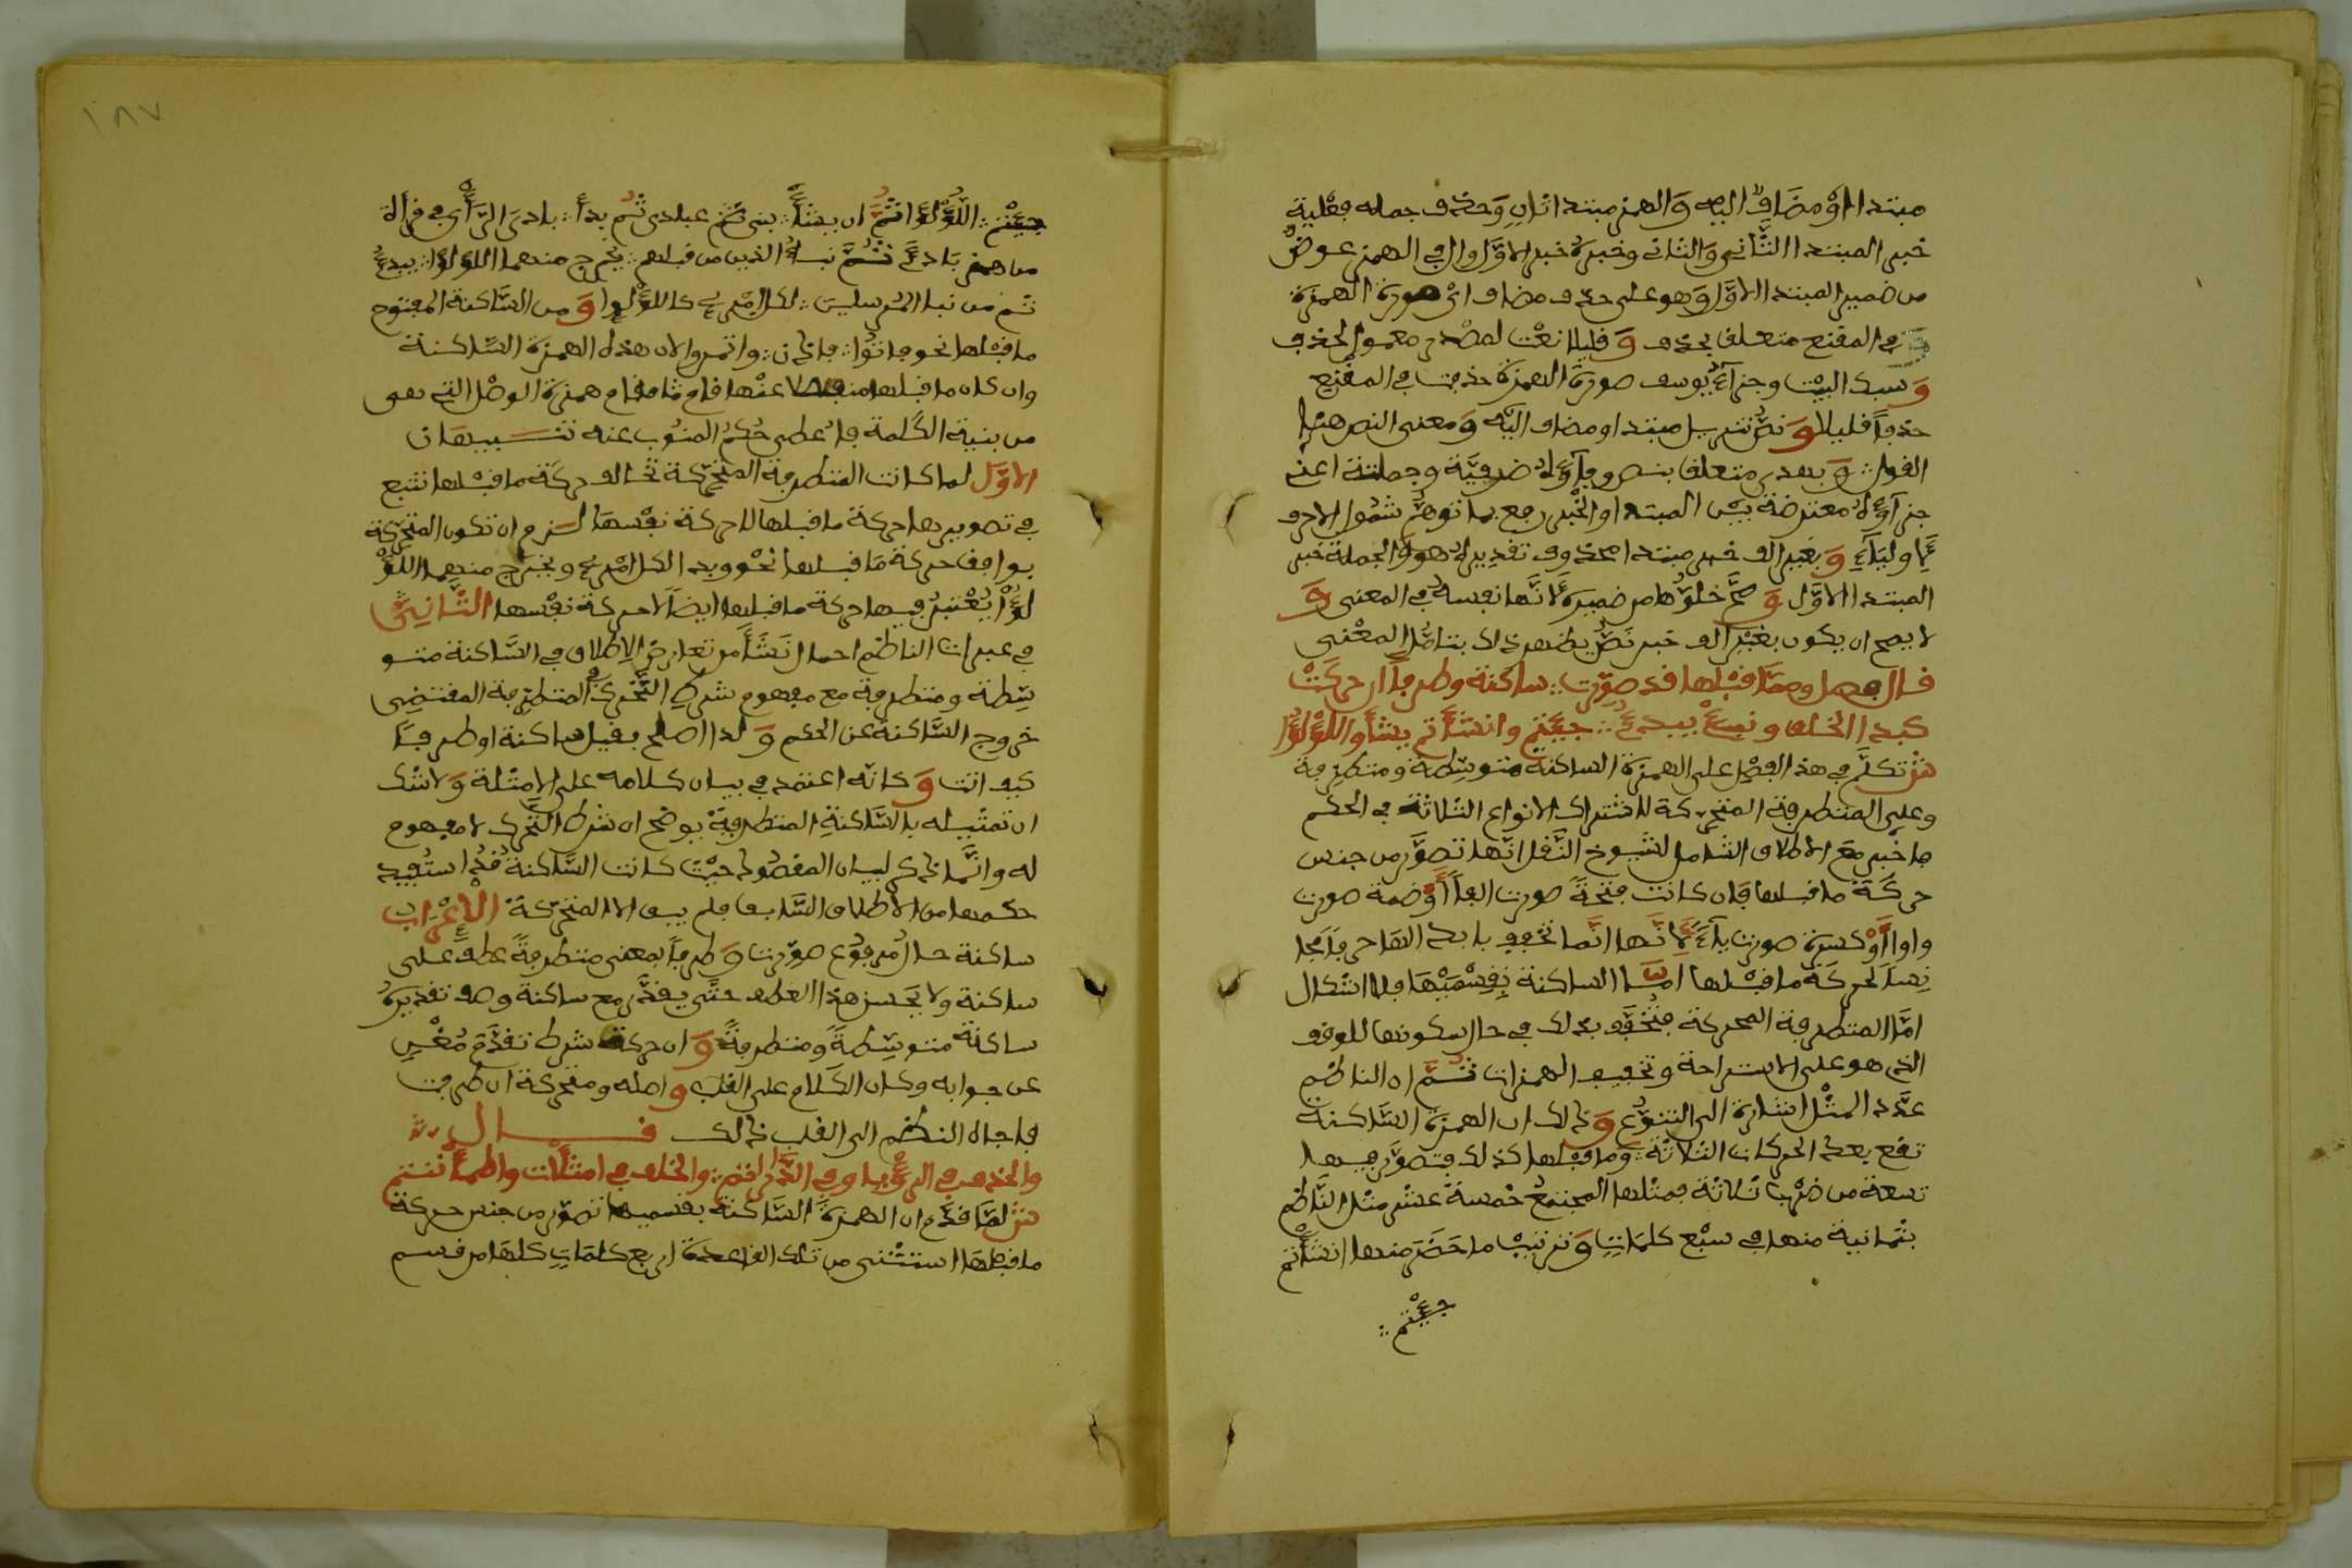 مبتدا او مضاف اليه وَالهمز مبتدا ثانٍ وَحذف جمله فِعْلية
خبر المبتدا الثَّاني وَالثاني وخبرهُ خبر الاوَّل وال في الهمز عوضٌ
من ضمير المبتدا الاوَّل وَهو على حذف مضاف ائ صورة الهمزة
في المقنع متعلف بحذف وَ قليلا نعْت لمصْدر معمول لحذف
وَسبك البيْت وجزآءُ يوسف صورة الهمزة حذفت في المفْنِع
حذفاً قليلا وَ نصُّ تنزيل مبتدا ومضاف اليْه وَمعنى النص هنا
القول وَ بعدى متعلف بنص وجآؤهُ ضرفيَّة وجملته اعني
جزآؤهُ معترضة بيْن المبتدا والخبر رجع بها توهّمُ شمُول الاحرف
وَ بغير الف خبر مبتدا محذوف تقديرهُ هو وَ الجملة خبر
المبتدا الاوَّل وَ صحَّ خلوّها من ضميره لانَّها نفسه في المعنى وَ
لا يصح ان يكون بغيْر الف خبر نصّ يظهر ذلك بتامُّل المعْنى
فـال فصل وممَّا قبْلها قد صوّرت ساكنة وطرفاً ان حركَتْ
كبدا الخلف ونبئْ يبدئُ جئتم وانشأتم يشأ واللؤلؤا
ش تكلَّم في هذا الفصْل على الهمزة الساكنة متوسِّطة ومتطرِّفة
وعلى المتطرفة المتحركة لاشتراك الانواع الثلاثة في الحكم
فاخبر مع الاطلاف الشامل لشيوخ النَّفل انّها تصوَّر من جنس
حركَة ما قبلها فإن كانت فتحةً صورت الفاً أوْ ضمة صورت
واوا أوْ كسرة صورت يآءً لانَّها انَّما تخفف بابدالها حرفاً مجا
نساً لحركَة ما قبْلها امَّا الساكنة بِقِسْمَيْها فلا اشكال
امَّا المتطرفة المحركة فتُخَفَّف بذلك في حال سكونها للوقف
الذى هو على الاستراحة وتخفيف الهمزات ثُمَّ ان الناظم
عدَّد المثْل اشارة الى التنوُّع وَ ذلك ان الهمزة السَّاكنة
تقع بعد الحركات الثلاثة وما قبْلها كذلك فتصوَّر فيها
تسعة من ضرْب ثلاثة فمثْلها المجتمعُ خمسة عشر مثل النَّاظم
بثمانية منها في سبْع كلمَاتٍ وَ ترتيبُ ما حَضَر منها انشأتم
جئتم
١٨٧
جئتم اللُّؤلؤا ثُمَّ ان يشأ نبئ ثُم عبادى ثُم بدأ بادىَ الرَّأي في قراءة
من همز بَادئَ ثُمَّ نبأُ الذين من قبلهم يخرج منهما اللؤلؤا يبدئُ
ثم من نبإ المُرسلين لكل امْرئٍ كاللؤلؤ وَ من السَّاكنة المفتوح
ما قبْلها نحو فاتُوا فاذن واتمروا لان هذه الهمزة السَّاكنة
وان كان ما قبلها منفصلا عنْها قام مقام همزة الوصْل التي هي
من بنية الكَلمة فاُعطى حُكمُ المنُوب عنه تنبيـهان
الاوَّل لما كانت المتطرفة المتحرّكة تخالف حركة ما قبْلها تتبع
في تصويرها حركة ما قبلها لا حركة نفْسها لـزم ان تكون المتحرّكة
يوافف حركة مَا قبلها نحو وبدا لكل امْرئٍ ويخرج منهما اللؤ
لؤُ أ يُعْتبرُ فيها حركة ما قبلها ايضاً لا حركة نفْسها الثَّاني
في عبارات الناظم احمال نَشَأَ من تعارض الاطلاف في السَّاكنة متو
سِّطة ومتطرفة مع مفهوم شرطِ التَّحْرك في المتطرفة المقتضِى
خروج السَّاكنة عن الحكم وَ لذا اصلح بقيل ساكنة او طرفـًا
كيف اتت وَ كانّه اعتمد في بيان كلامه على الامثلة وَ لا شك
ان تمثيله بالسَّاكنةِ المتطرفةِ يوضح ان شرط التَّحرك لا مفهوم
له وانَّما ذكر لبيان المقصُود حيْث كانت السَّاكنة قدُ استُفيد
حكمها من الاطلاف السَّابف فلم يبف الا المتحرّكة الاِعْرَاب
ساكنة حال مُن مرفوُع صوِّرت وَ طرفاً بمعنى متطرفةً عطف على
ساكنة ولا يَحسن هذا العطف حتَّى يقدَّر مع ساكنة وصف تقديرهُ
ساكنةً متوسِّطةً ومتطرفةً وَ ان حركت شرط تقدَّم مُغْنٍ
عن جوابه وكان الكَلام على القلب و اصله ومتحركة ان طرفت
فاجاه النظم الى القلب ذلك فــــال
والحذف في الرءْيا وفي ادَّارأتم والخلف في امتلأت واطمأننتم
ش لمَّا قدَّم ان الهمزة السَّاكنة بقسميها تصوّر من جنس حركة
ما قبلهَا استثْنى من تلك القاعدة اربع كلمَات كلهَا من قسم